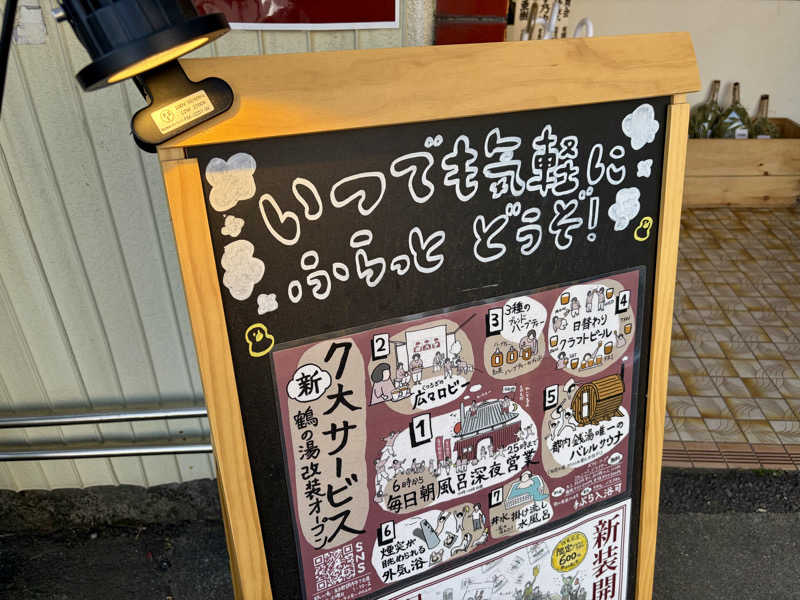 いつでも気軽に
ふらっと どうぞ!
新
鶴の湯改装オープン
ク大サービス
1
6時から
25時まで
毎日朝風呂深夜営業
2
くつろぎの
広々ロビー
3
3種の
ブレンド
ハーブティー
4
日替わり
クラフトビール
5
都内銭湯唯一の
バレルサウナ
手ぶら入浴可
6
煙突が
眺められる
外気浴
7
井水掛け流し
水風呂
SNS
新装開
600